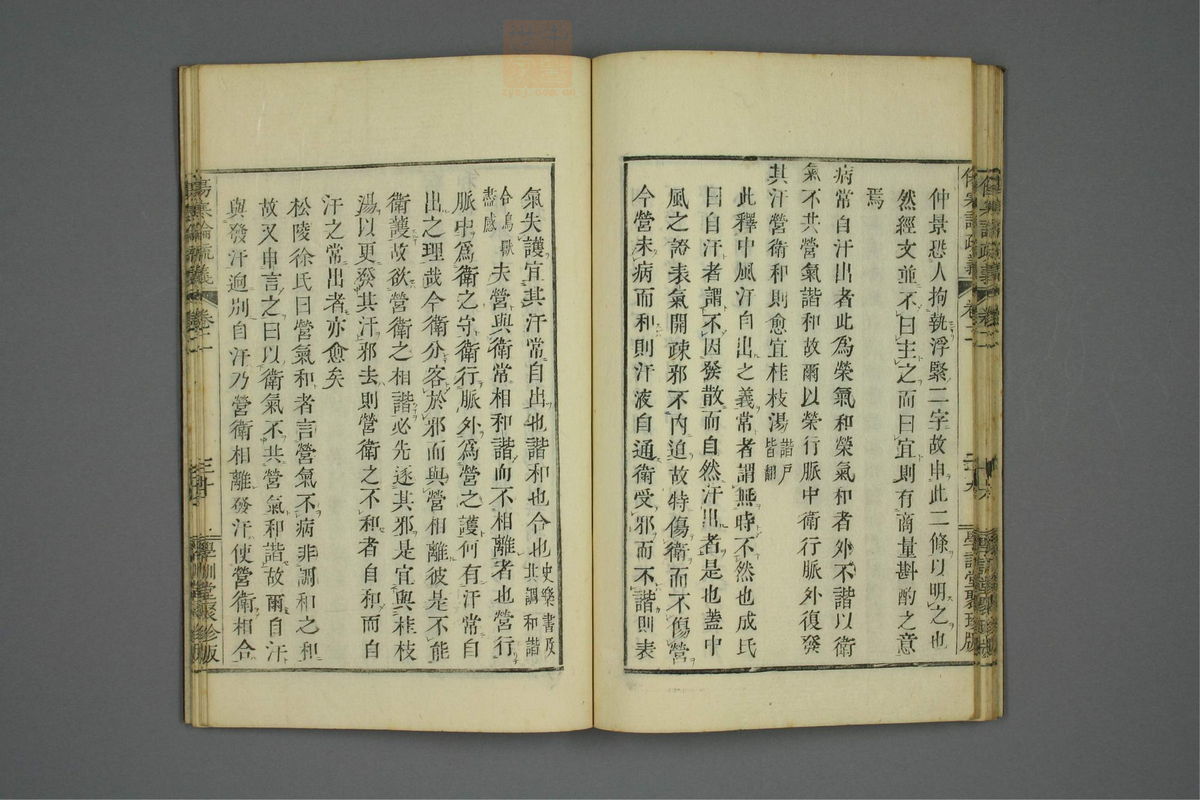 仲景恐人拘執浮緊二字故申此二條以明之也
然經文並不曰主之而曰宜則有商量斟酌之意
焉
病常自汗出者此爲榮氣和榮氣和者外不諧以衛
氣不共營氣諧和故爾以榮行脈中衛行脈外復發
其汗營衛和則愈宜桂枝湯諧戸
皆翻
此釋中風汗自出之義常者謂無時不然也成氏
曰自汗者謂不因發散而自然汗出者是也蓋中
風之證表氣開疎邪不內迫故特傷衛而不傷營
今營未病而和則汗液自通衛受邪而不諧則表
氣失護宜其汗常自出也諧和也合也史樂書及
其調和諧
合鳥獸
盡感夫營與衛常相和諧而不相離者也營行
脈中爲衛之守衛行脈外爲營之護何有汗常自
出之理哉今衛分客於邪而與營相離彼是不能
衛護故欲營衛之相諧必先逐其邪是宜與桂枝
湯以更發其汗邪去則營衛之不和者自和而自
汗之常出者亦愈矣
松陵徐氏曰營氣和者言營氣不病非調和之和
故又申言之曰以衛氣不共營氣和諧故爾自汗
與發汗迥別自汗乃營衛相離發汗使營衛相合
傷寒論疏義
卷二
學訓堂聚珍版